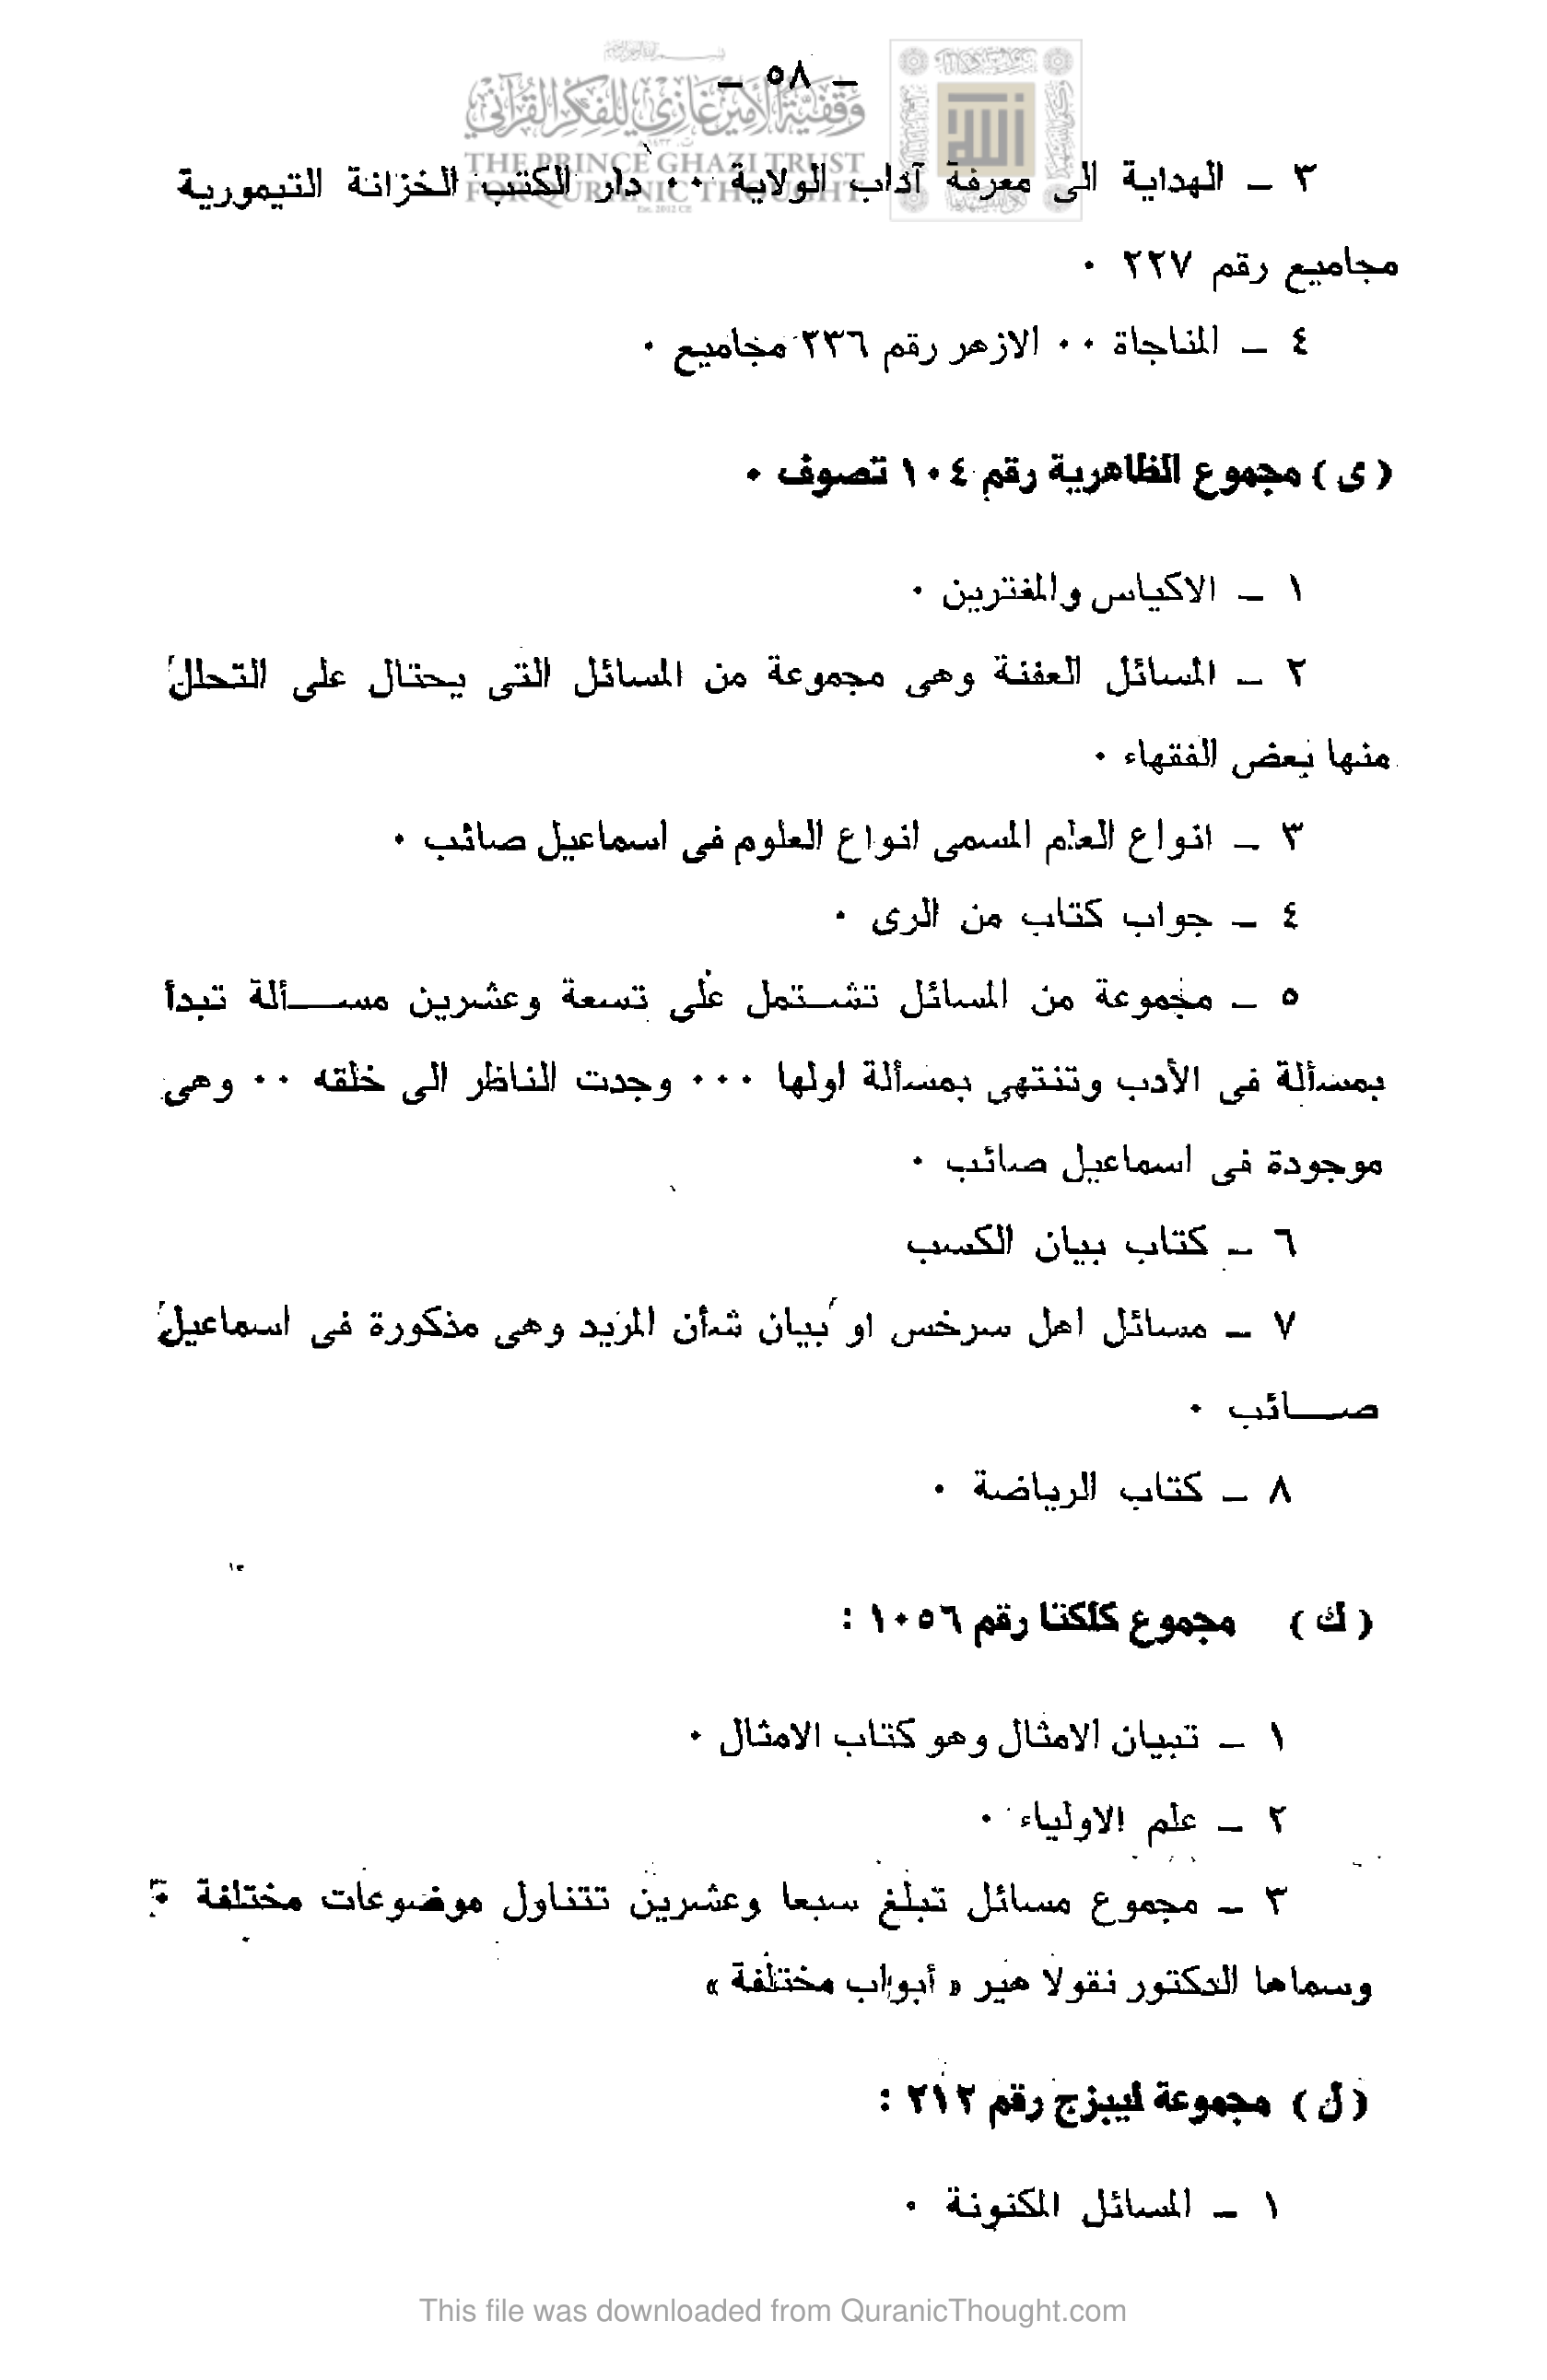 ـ ٥٨ ـ
وقفية الأمير غازي للفكر القرآني
THE PRINCE GHAZI TRUST
FOR QURANIC THOUGHT
Est. 2012 CE
٣ ـ الهداية الى معرفة آداب الولاية ٠٠ دار الكتب الخزانة التيمورية
مجاميع رقم ٢٢٧ ٠
٤ ـ المناجاة ٠٠ الازهر رقم ٢٣٦ مجاميع ٠
( ى ) مجموع الظاهرية رقم ١٠٤ تصوف ٠
١ ـ الاكياس والمغترين ٠
٢ ـ المسائل العفنة وهى مجموعة من المسائل التى يحتال على التحلل
منها بعض الفقهاء ٠
٣ ـ انواع العلم المسمى انواع العلوم فى اسماعيل صائب ٠
٤ ـ جواب كتاب من الرى ٠
٥ ـ مجموعة من المسائل تشـتمل على تسعة وعشرين مســألة تبدأ
بمسألة فى الأدب وتنتهى بمسألة اولها ٠٠٠ وجدت الناظر الى خلقه ٠٠ وهى
موجودة فى اسماعيل صائب ٠
٦ ـ كتاب بيان الكسب
٧ ـ مسائل اهل سرخس او بيان شأن المريد وهى مذكورة فى اسماعيل
صــائب ٠
٨ ـ كتاب الرياضة ٠
( ك ) مجموع كلكتا رقم ١٠٥٦ :
١ ـ تبيان الامثال وهو كتاب الامثال ٠
٢ ـ علم الاولياء ٠
٣ ـ مجموع مسائل تبلغ سبعا وعشرين تتناول موضوعات مختلفة ٠
وسماها الدكتور نقولا هير « أبواب مختلفة »
( ل ) مجموعة ليبزج رقم ٢١٢ :
١ ـ المسائل المكنونة ٠
This file was downloaded from QuranicThought.com